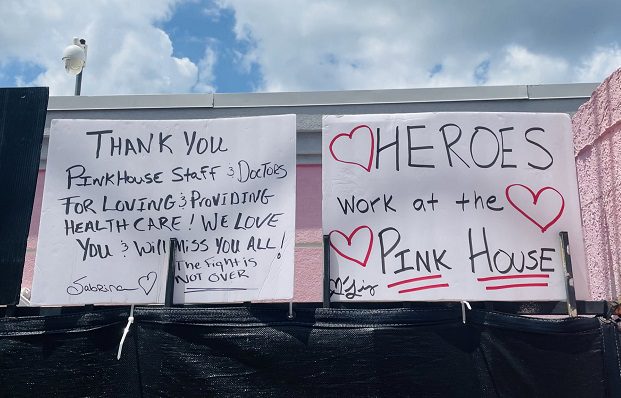 THANK YOU
PINKHOUSE STAFF & DOCTORS
FOR LOVING & PROVIDING
HEALTH CARE! WE LOVE
YOU & WILL MISS YOU ALL!
THE FIGHT IS
NOT OVER
Sabrina
HEROES
WORK at the
PINK HOUSE